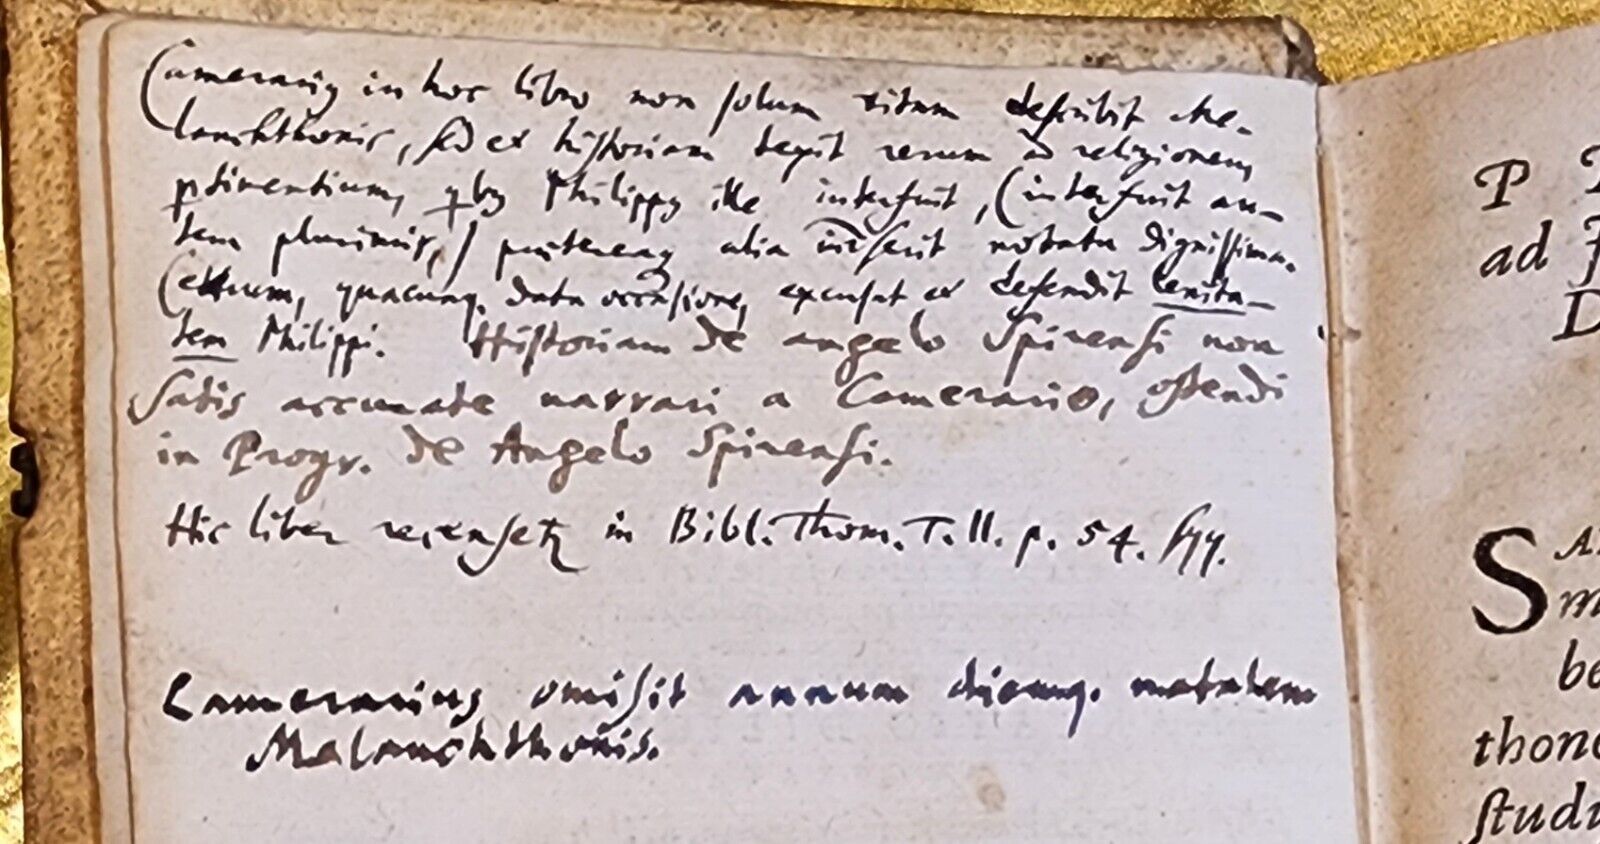 Camerarius in hoc libro non solum vitam describit Me-
lanchthonis, sed et historiam tegit rerum ad religionem
pertinentium, qbus Philippus ille interfuit, (interfuit au-
tem plurimis,) alia inserit notatu dignissima.
Ceterum, quacunq. data occasione, excusat et defendit lenita-
tem Philippi. Historiam de angelo Spirensi non
satis accurate narrari a Camerario, ostendi
in Progr. de Angelo Spirensi.
Hic liber recensetur in Bibl. Thom. T. II. p. 54. sqq.
Camerarius omisit annum diemq. natalem
Melanchthonis.
P
ad
D
S
m
be
thon
studi